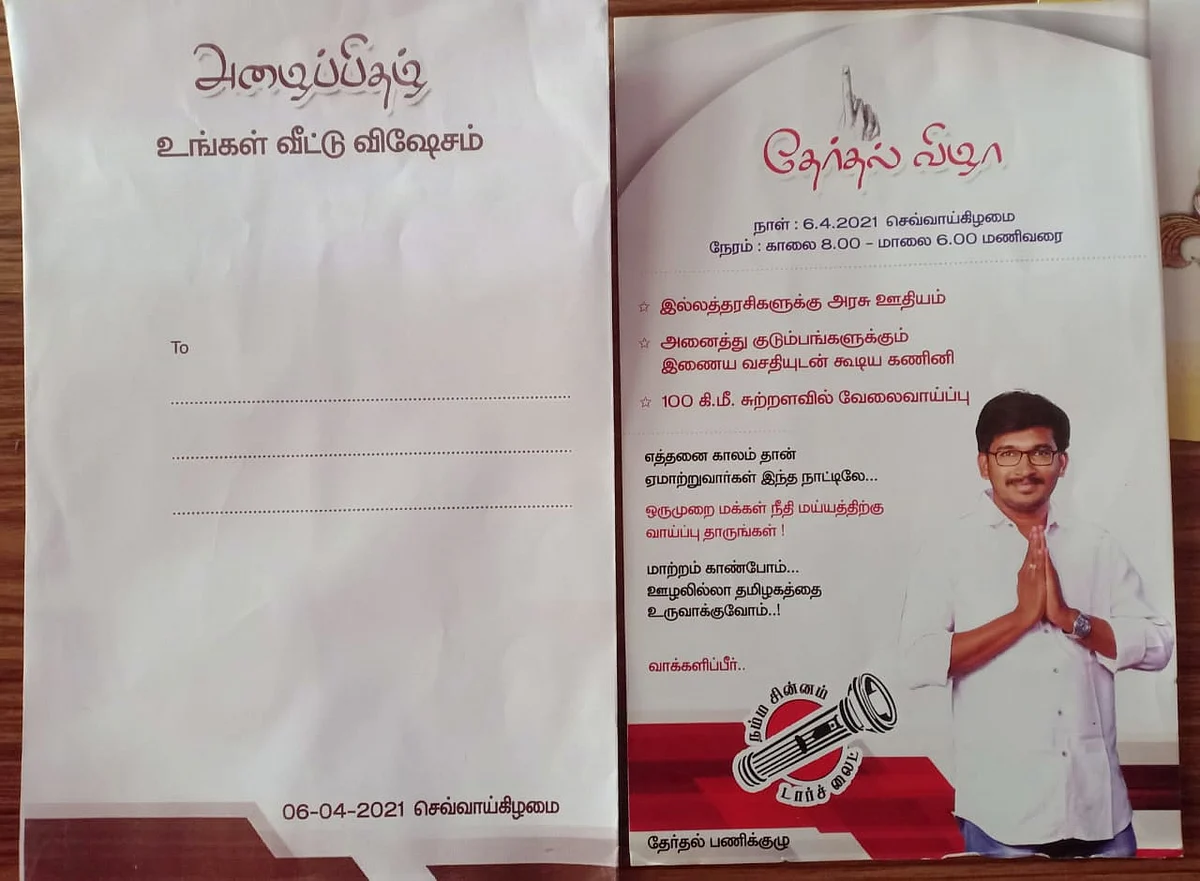 அழைப்பிதழ்
உங்கள் வீட்டு விஷேசம்
To
06-04-2021 செவ்வாய்கிழமை
தேர்தல் விழா
நாள் : 6.4.2021 செவ்வாய்கிழமை
நேரம் : காலை 8.00 - மாலை 6.00 மணிவரை
இல்லத்தரசிகளுக்கு அரசு ஊதியம்
அனைத்து குடும்பங்களுக்கும்
இணைய வசதியுடன் கூடிய கணினி
100 கி.மீ. சுற்றளவில் வேலைவாய்ப்பு
எத்தனை காலம் தான்
ஏமாற்றுவார்கள் இந்த நாட்டிலே...
ஒருமுறை மக்கள் நீதி மய்யத்திற்கு
வாய்ப்பு தாருங்கள் !
மாற்றம் காண்போம்...
ஊழலில்லா தமிழகத்தை
உருவாக்குவோம்..!
வாக்களிப்பீர்..
நம்ம சின்னம்
டார்ச் லைட்
தேர்தல் பணிக்குழு